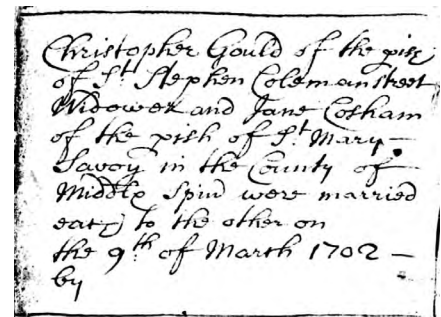 Christopher Gould of the pish
of St Stephen Colemanstreet
Widower and Jane Cosham
of the pish of St Mary –
Savoy in the County of
Middlx Spinr were married
each to the other on
the 9th of March 1702 –
by